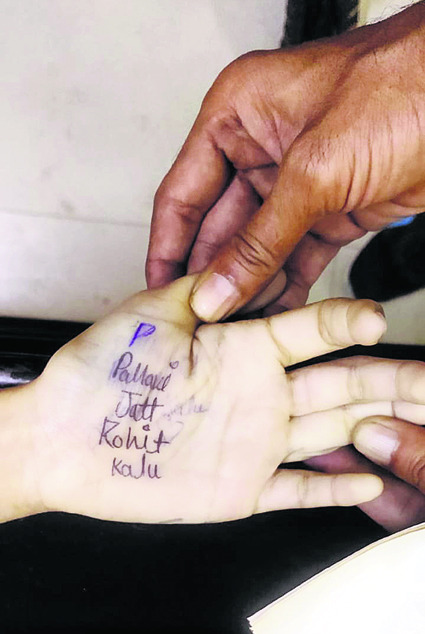 P
Pallavi
Jatt
Rohit
Kalu